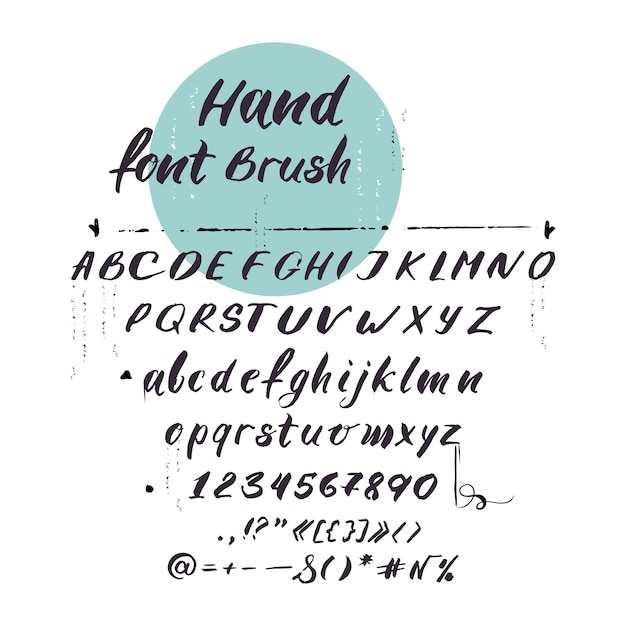 Hand
font Brush
A B C D E F G H I J K L M N O
P Q R S T U V W X Y Z
a b c d e f g h i j k l m n
o p q r s t u v w x y z
1 2 3 4 5 6 7 8 9 0
. , ! ? " « [ { } ] » ‹ ›
@ = + - — S ( ) * # N %